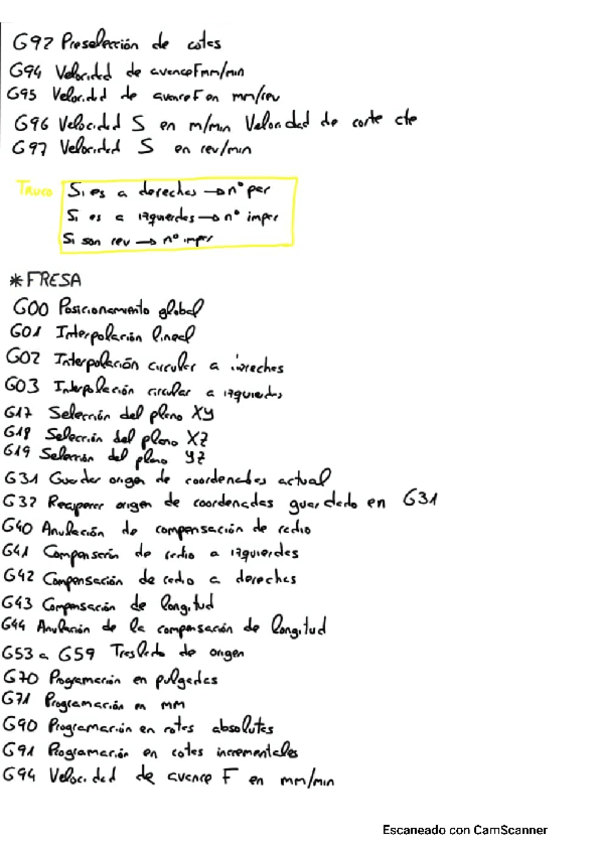 G92 Preselección de cotas
G94 Velocidad de avance F mm/min
G95 Velocidad de avance F en mm/rev
G96 Velocidad S en m/min Velocidad de corte cte
G97 Velocidad S en rev/min
Truco Si es a derechas → nº par
Si es a izquierdas → nº impar
Si son rev → nº impar
*FRESA
G00 Posicionamiento global
G01 Interpolación lineal
G02 Interpolación circular a derechas
G03 Interpolación circular a izquierdas
G17 Selección del plano XY
G18 Selección del plano XZ
G19 Selección del plano YZ
G31 Guardar origen de coordenadas actual
G32 Recuperar origen de coordenadas guardado en G31
G40 Anulación de compensación de radio
G41 Compensación de radio a izquierdas
G42 Compensación de radio a derechas
G43 Compensación de longitud
G44 Anulación de la compensación de longitud
G53 a G59 Traslado de origen
G70 Programación en pulgadas
G71 Programación en MM
G90 Programación en cotas absolutas
G91 Programación en cotas incrementales
G94 Velocidad de avance F en mm/min
Escaneado con CamScanner